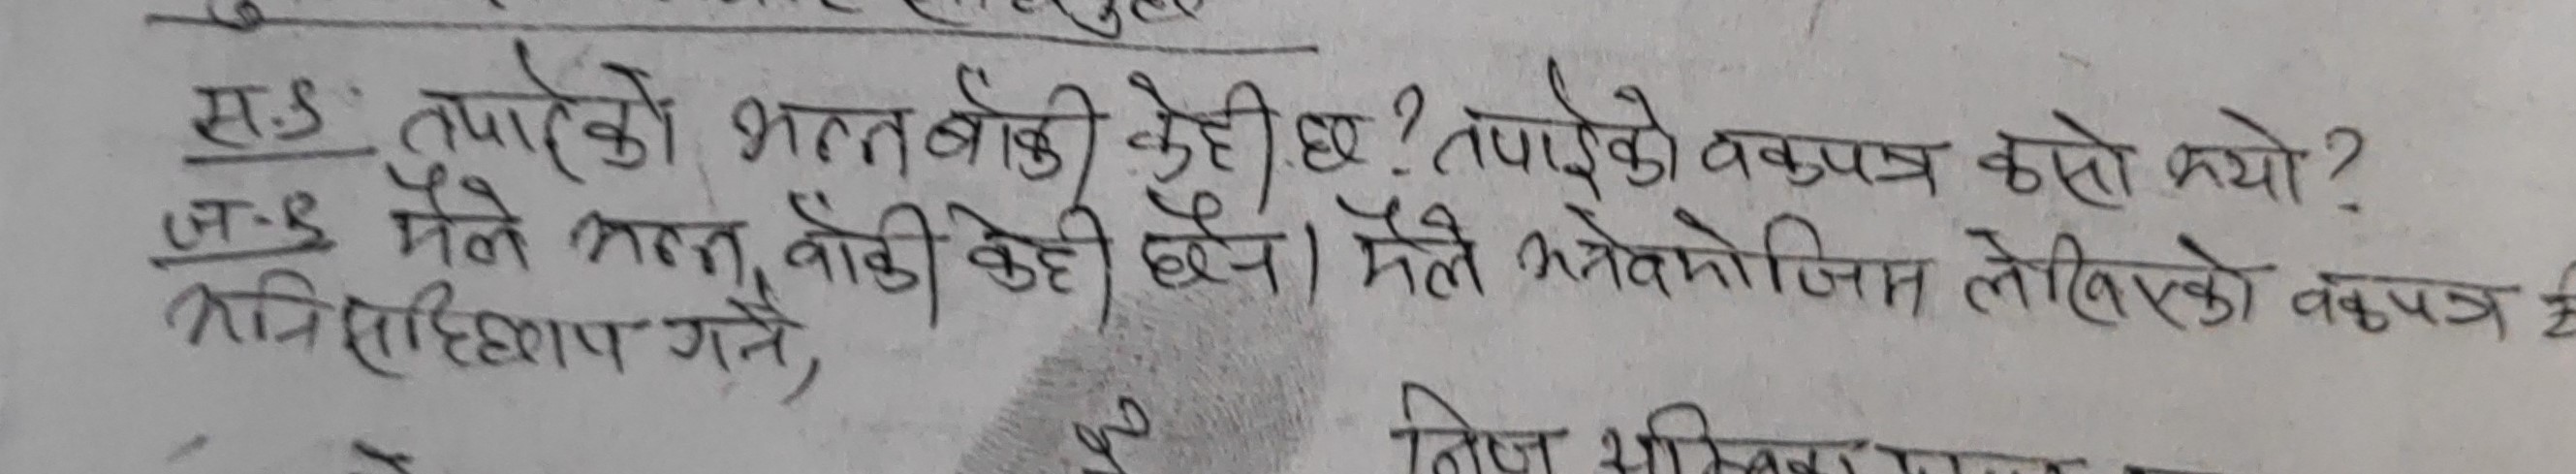 स.ऽ तपाईको भन्न बाँकी केही छ? तपाईको वकपत्र कसो भयो?
ज.ऽ मैले भन्न बाँकी केही छैन। मैले भनेबमोजिम लेखिएको वकपत्र
भनि सहिछाप गर्ने,
निज